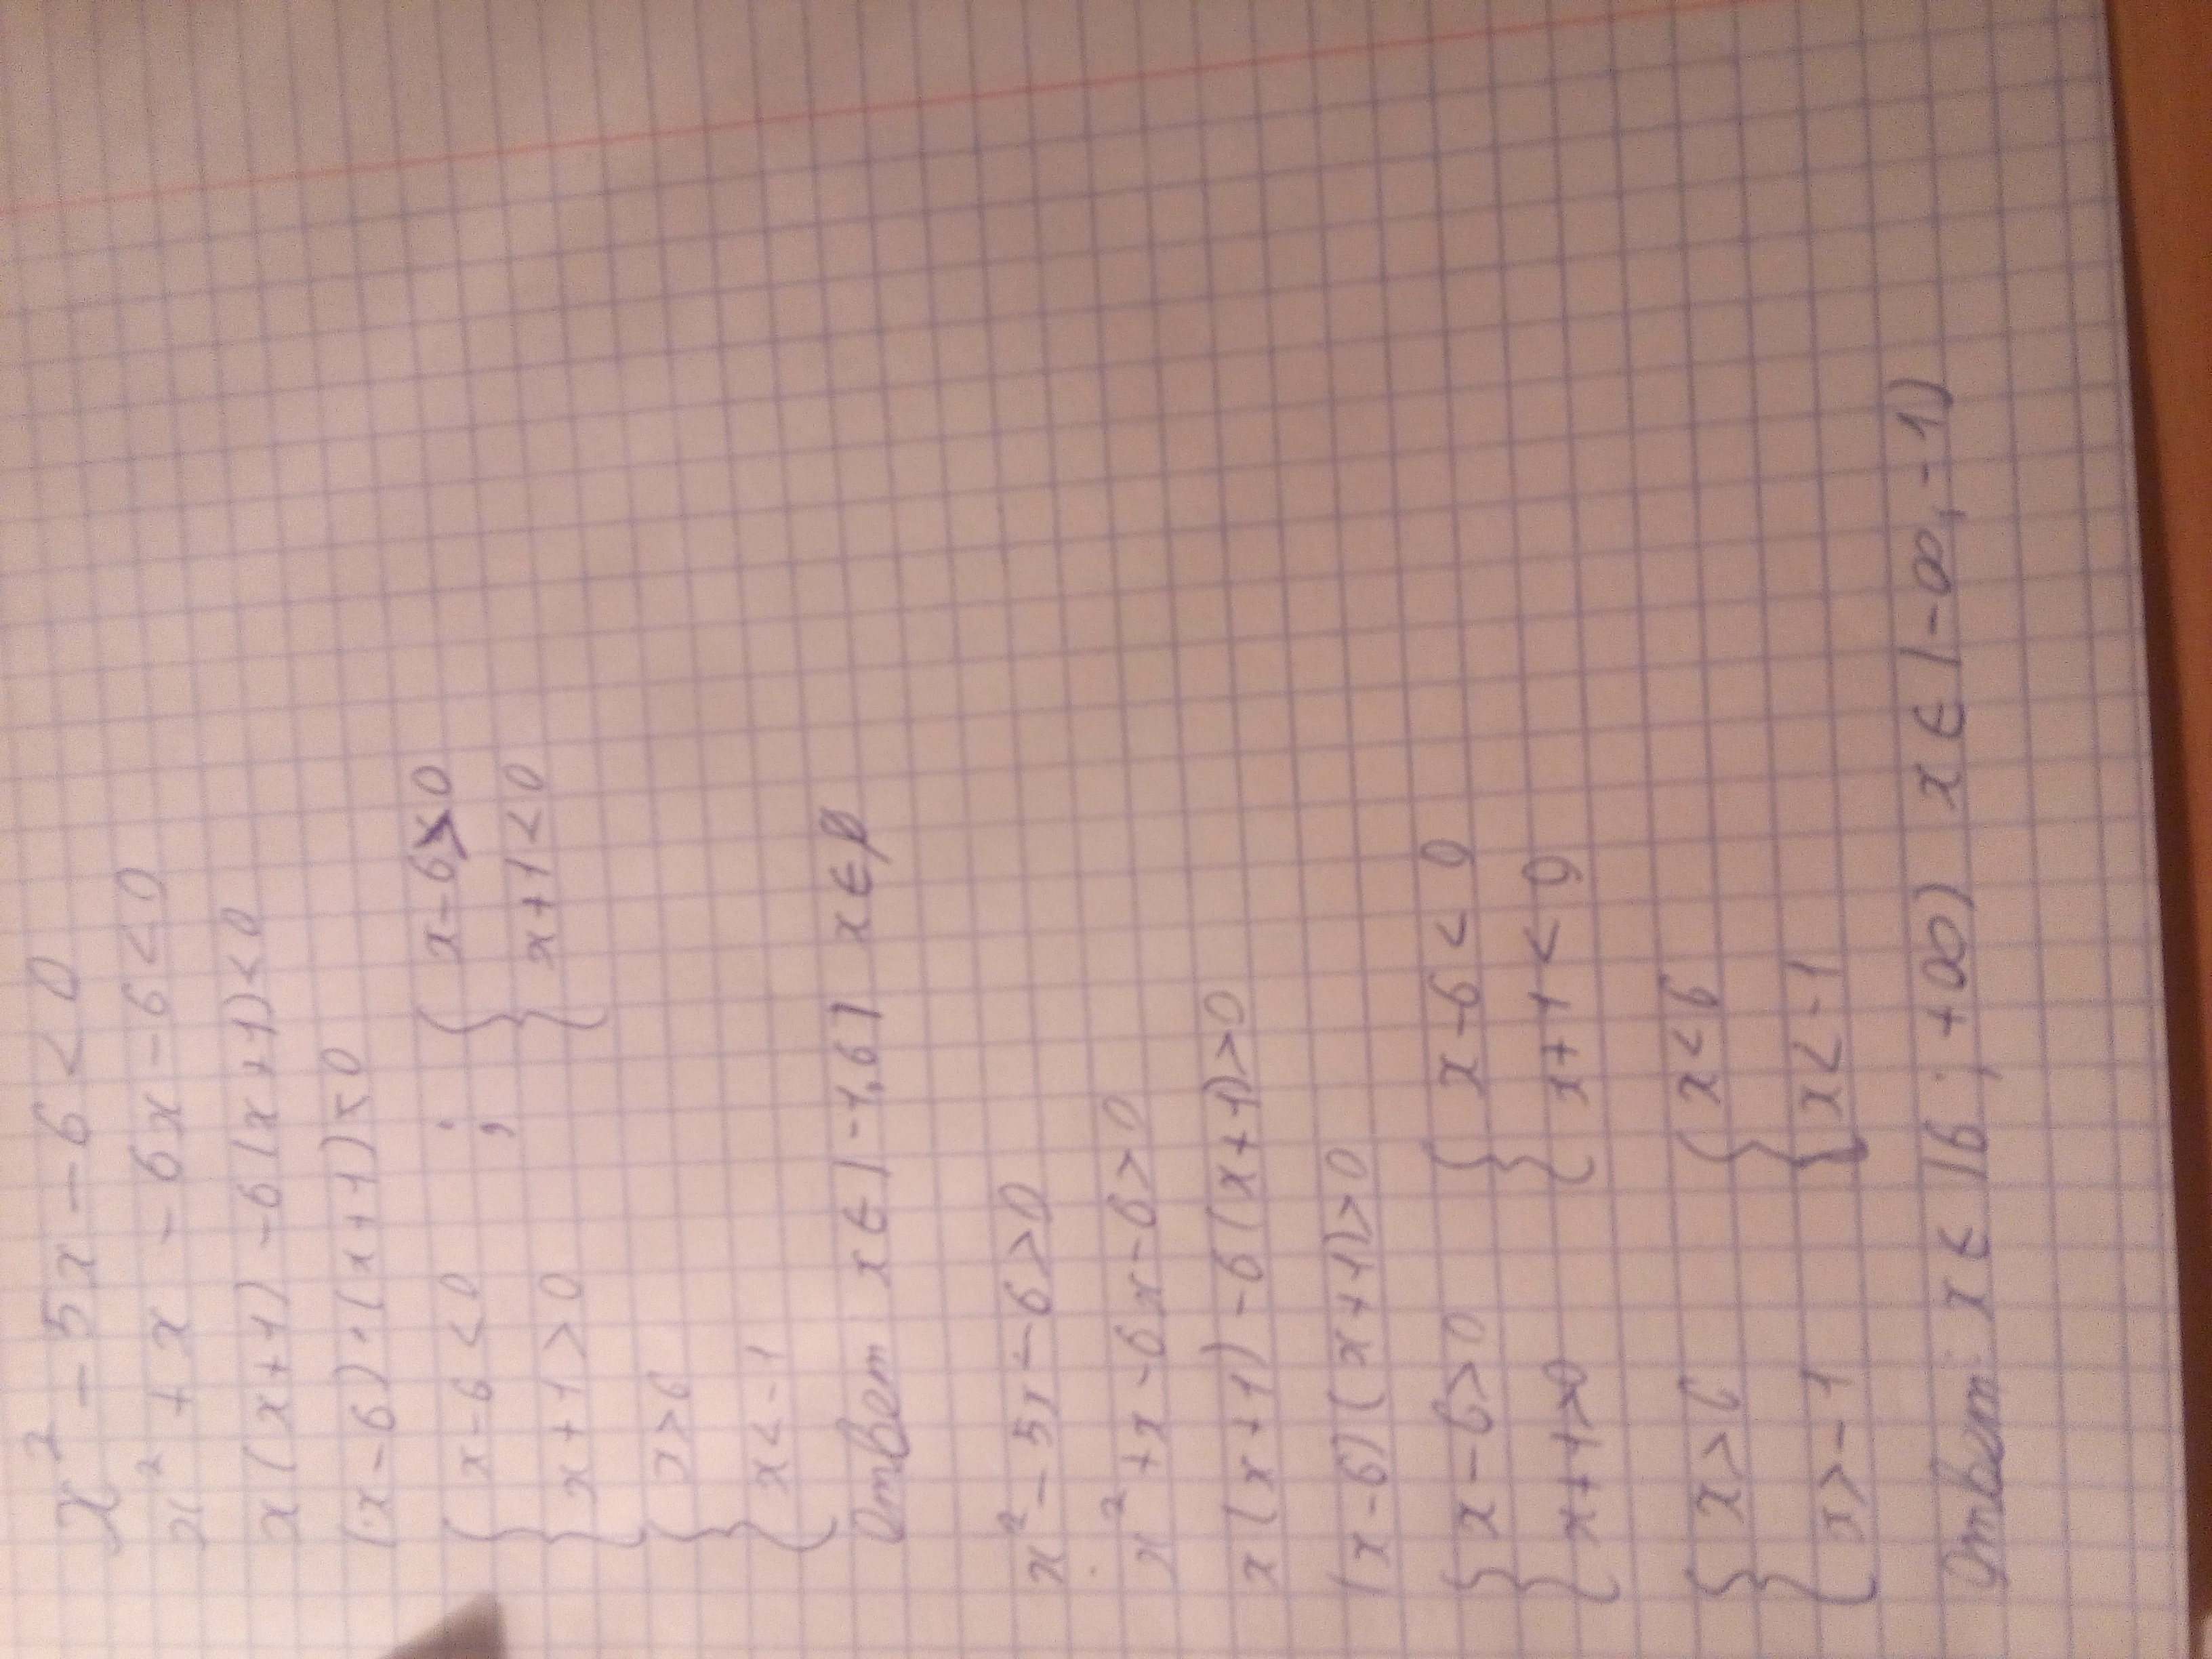 x² - 5x - 6 < 0
x² + x - 6x - 6 < 0
x(x+1) - 6(x+1) < 0
(x-6)·(x+1) < 0
{ x-6 < 0 ; { x-6 > 0
{ x+1 > 0 { x+1 < 0
{ x > 6
{ x < -1
Ответ x ∈ (-1,6) x ∈ ∅
x² - 5x - 6 > 0
x² + x - 6x - 6 > 0
x(x+1) - 6(x+1) > 0
(x-6)(x+1) > 0
{ x-6 > 0 { x-6 < 0
{ x+1 > 0 { x+1 < 0
{ x > 6 { x < 6
{ x > -1 { x < -1
Ответ: x ∈ (6; +∞) x ∈ (-∞, -1)